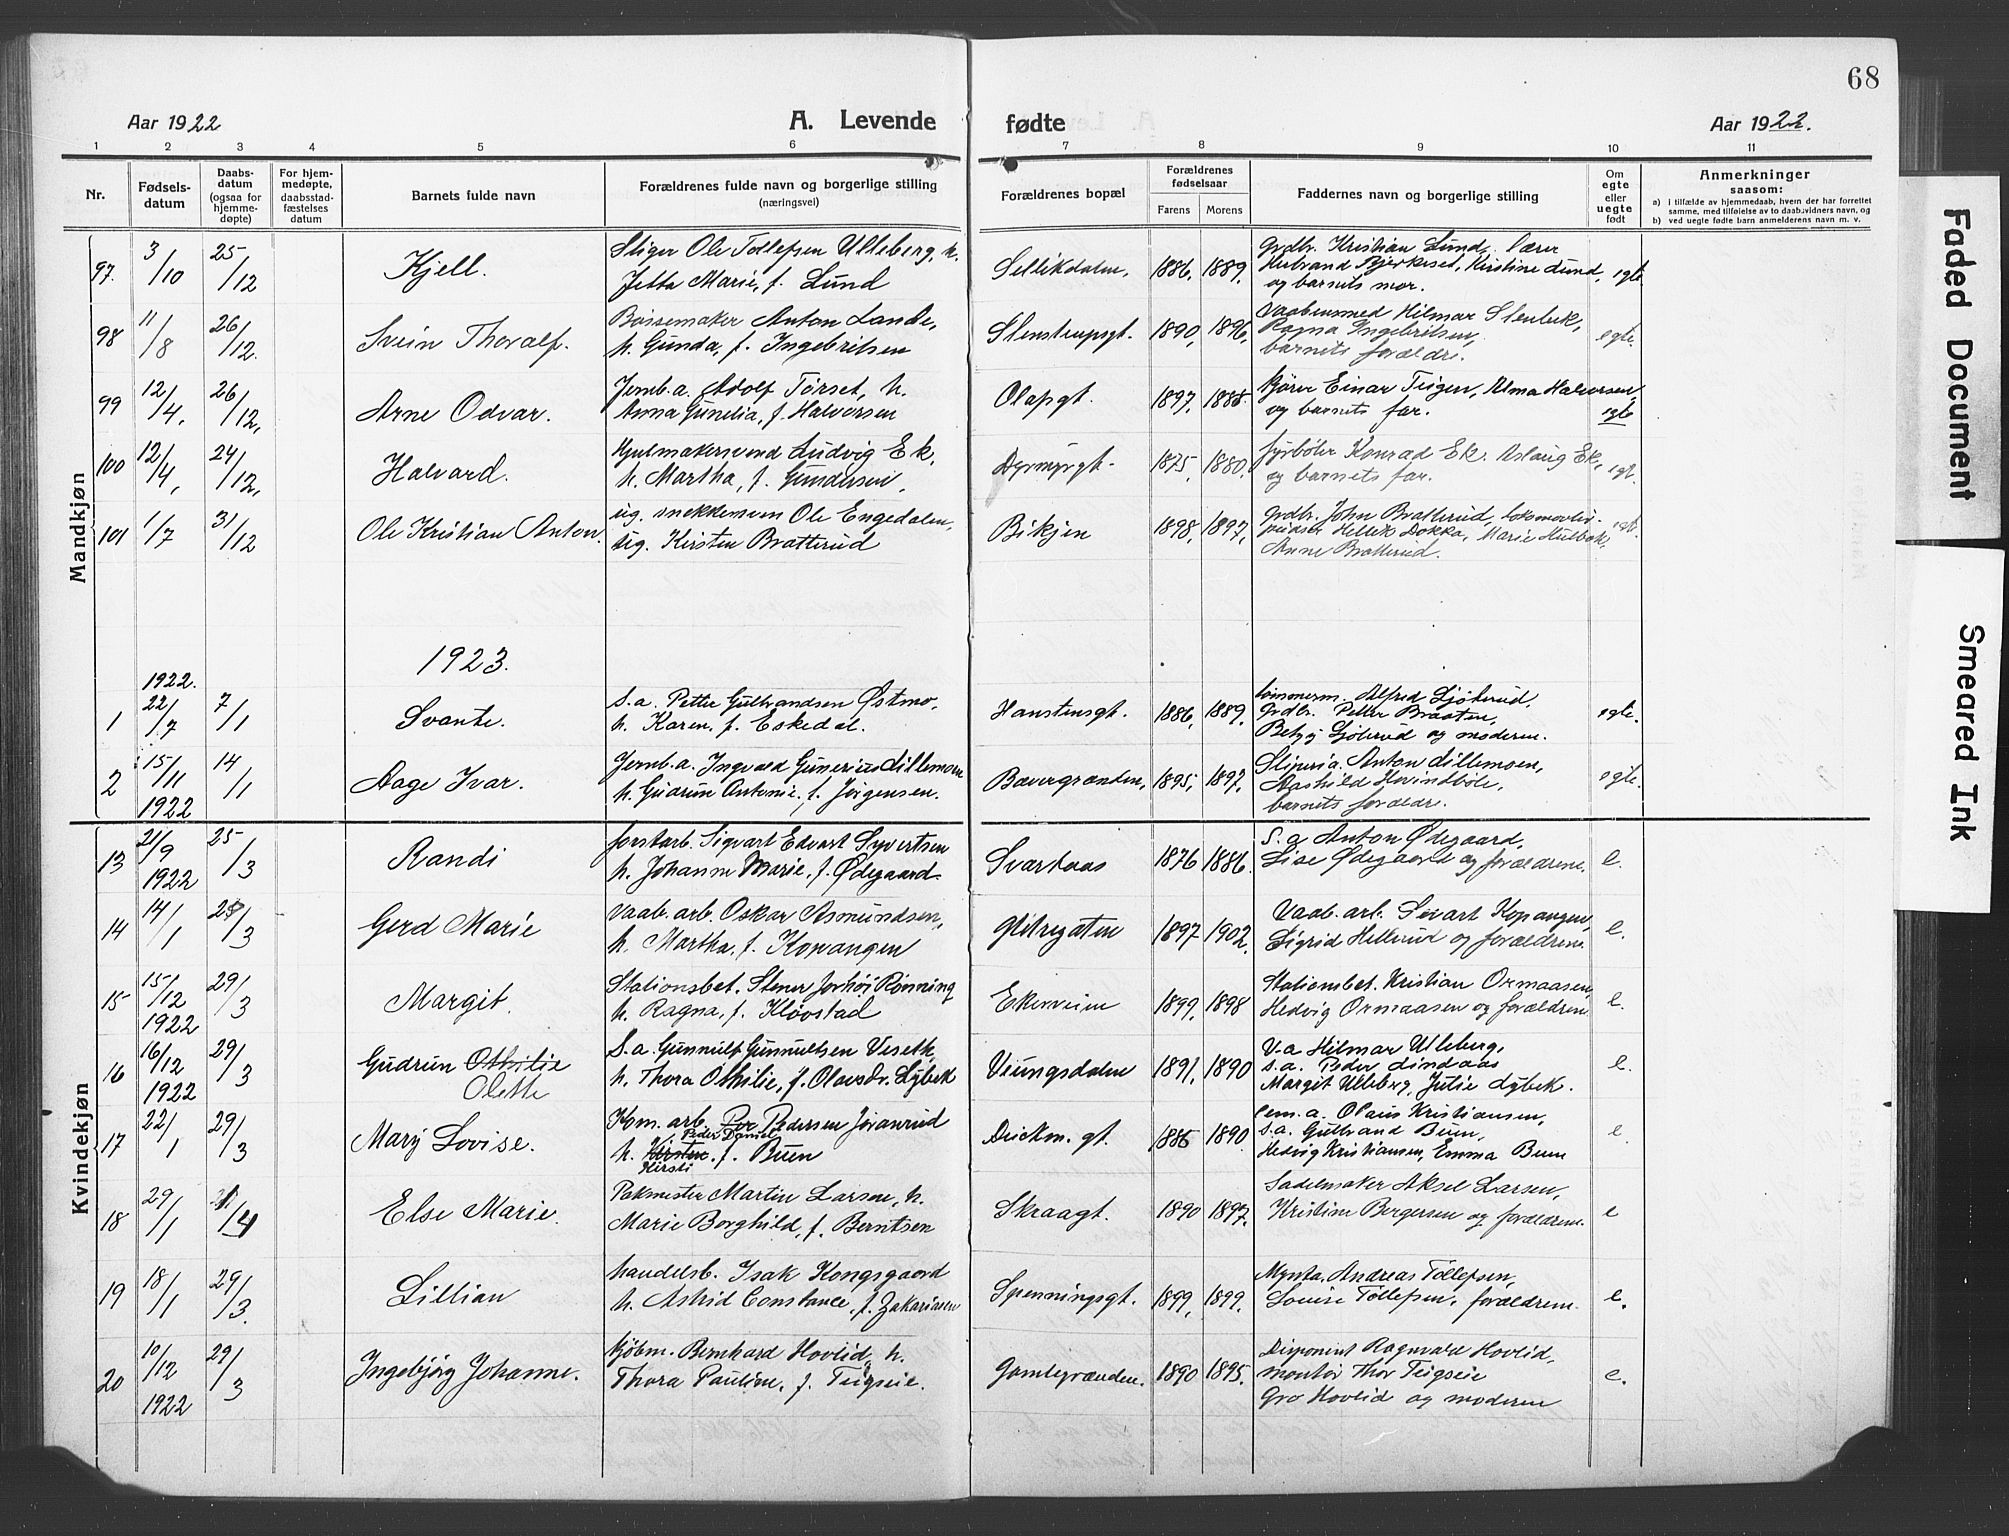 68
Aar 1922
A. Levende
fødte
Aar 1922.
1 2 3 4 5 6 7 8 9 10 11
Nr.
Fødsels-
datum
Daabs-
datum
(ogsaa for
hjemme-
døpte)
For hjem-
medøpte,
daabsstad-
fæstelses
datum
Barnets fulde navn
Forældrenes fulde navn og borgerlige stilling
(næringsvei)
Forældrenes bopæl
Forældrenes
fødselsaar
Farens Morens
Faddernes navn og borgerlige stilling
Om
egte
eller
uegte
født
Anmerkninger
saasom:
a) i tilfælde av hjemmedaab, hvem der har forrettet
samme, med tilføielse av to daabsvidners navn, og
b) ved uegte fødte barn anmelderens navn m. v.
Mandkjøn
97. 3/10 25/12 Kjell. Stiger Ole Tollefsen Ulleberg, h.
Jetta Marie, f. Lund
Sellikdalen, 1886, 1889,
Grdbr. Kristian Lund, lærer
Herbrand Bjerkeset, Kristine Lund,
og barnets mor. egte.
98 11/8 26/12. Svein Thoralf. Bøssemaker Anton Lande,
h. Gunda, f. Ingebritsen
Stenstrupsgt. 1890, 1896,
Vaabensmed Hilmar Stenbek,
Ragna Ingebritsen,
barnets forældre. egte.
99 12/4, 26/12, Arne Odvar. Jernb.a. Adolf Tørset, h.
Anna Gunelia, f. Halvorsen
Olafsgt. 1897, 1888.
Kjører Einar Teigen, Alma Halvorsen,
og barnets far. egte
100 12/4, 24/12, Halvard. Hjulmakersvend Ludvig Ek,
h. Martha, f. Gundersen,
Dyrmyrgt. 1875, 1880,
Fyrbøter Konrad Ek. Aslaug Ek,
og barnets far. egt.
101 1/7 31/12 Ole Kristian Anton. ug. snekkersven Ole Engedalen,
ug. Kirsten Bratterud
Bikjen 1898, 1897,
Grdbr. John Bratterud, lokomotiv-
pudser Hellik Dokka, Marie Hulbak,
Anne Bratterud.
1923.
1922.
1 22/7 7/1 Svante. S.a. Petter Gulbrandsen Østmo,
h. Karen, f. Eskedal.
Hanstensgt. 1886, 1889,
Tømmerm. Alfred Gjøterud,
Grdbr. Petter Braaten,
Betzy Gjøterud og moderen. egte.
2 15/11 1922 14/1 Aage Ivar. Jernb.a. Ingvald Gunerius Lillemoen
h. Gudrun Antonie, f. Jørgensen.
Bævergrænden, 1895, 1897,
Sliperia. Anton Lillemoen,
Aashild Hovindbøle,
barnets forældre. egte.
Kvindekjøn
13 21/9 1922 25/3 Randi forstarb. Sigvart Edvart Syvertsen
h. Johanne Marie, f. Ødegaard.
Svartaas 1876 1886.
S.a. Anton Ødegaard,
Lise Ødegaard og forældrene. e.
14 14/1 25/3 Gerd Marie vaab. arb. Oskar Asmundsen,
h. Martha, f. Kopangen
Glitregaten 1897 1902.
Vaab. arb. Sivart Kopangen,
Sigrid Hellerud og forældrene. e.
15 15/12 1922 29/3 Margit. Stationsbet. Stener Jorhøi Rønning
h. Ragna, f. Kløvstad
Ekersveien 1899, 1898
Stationsbet. Kristian Ormaasen,
Hedvig Ormaasen og forældrene e.
16 16/12 1922 29/3 Gudrun Othilie
Olette
S.a. Gunnulf Gunnulfsen Veseth,
h. Thora Othilie, f. Olavsdr. Lybek
Veungsdalen 1891, 1890
V.a Hilmar Ulleberg,
s.a. Peder Lindaas
Margit Ulleberg, Julie Lybek. e.
17 22/1 29/3 Mary Lovise. Kom. arb. Per Pedersen Joranrud
Peder Daniel
h. Kirsten. f. Buen
Kirsti
Dickm. gt. 1886 1890
Cem. a. Olaus Kristiansen,
s.a. Gulbrand Buen,
Hedvig Kristiansen, Emma Buen e.
18 29/1 /4 Else Marie. Pakmester Martin Larsen, h.
Marie Borghild, f. Berntsen
Skraagt. 1890 1897.
Sadelmaker Aksel Larsen,
Kristine Bergersen og forældrene. e
19 18/1 29/3. Lillian handelsb. Isak Kongsgaard
h. Astrid Constance, f. Zakariasen
Spenningsgt. 1899, 1899.
Mynta. Andreas Tollefsen,
Louise Tollefsen, forældrene. e.
20 10/12 1922 29/3 Ingebjørg Johanne. Kjøbm. Bernhard Hovlid, h.
Thora Pauline, f. Teigseie.
Gamlegrænden. 1890 1895.
Disponent Ragnvald Hovlid,
montør Thor Teigseie
Gro Hovlid og moderen e.
Faded Document
Smeared Ink